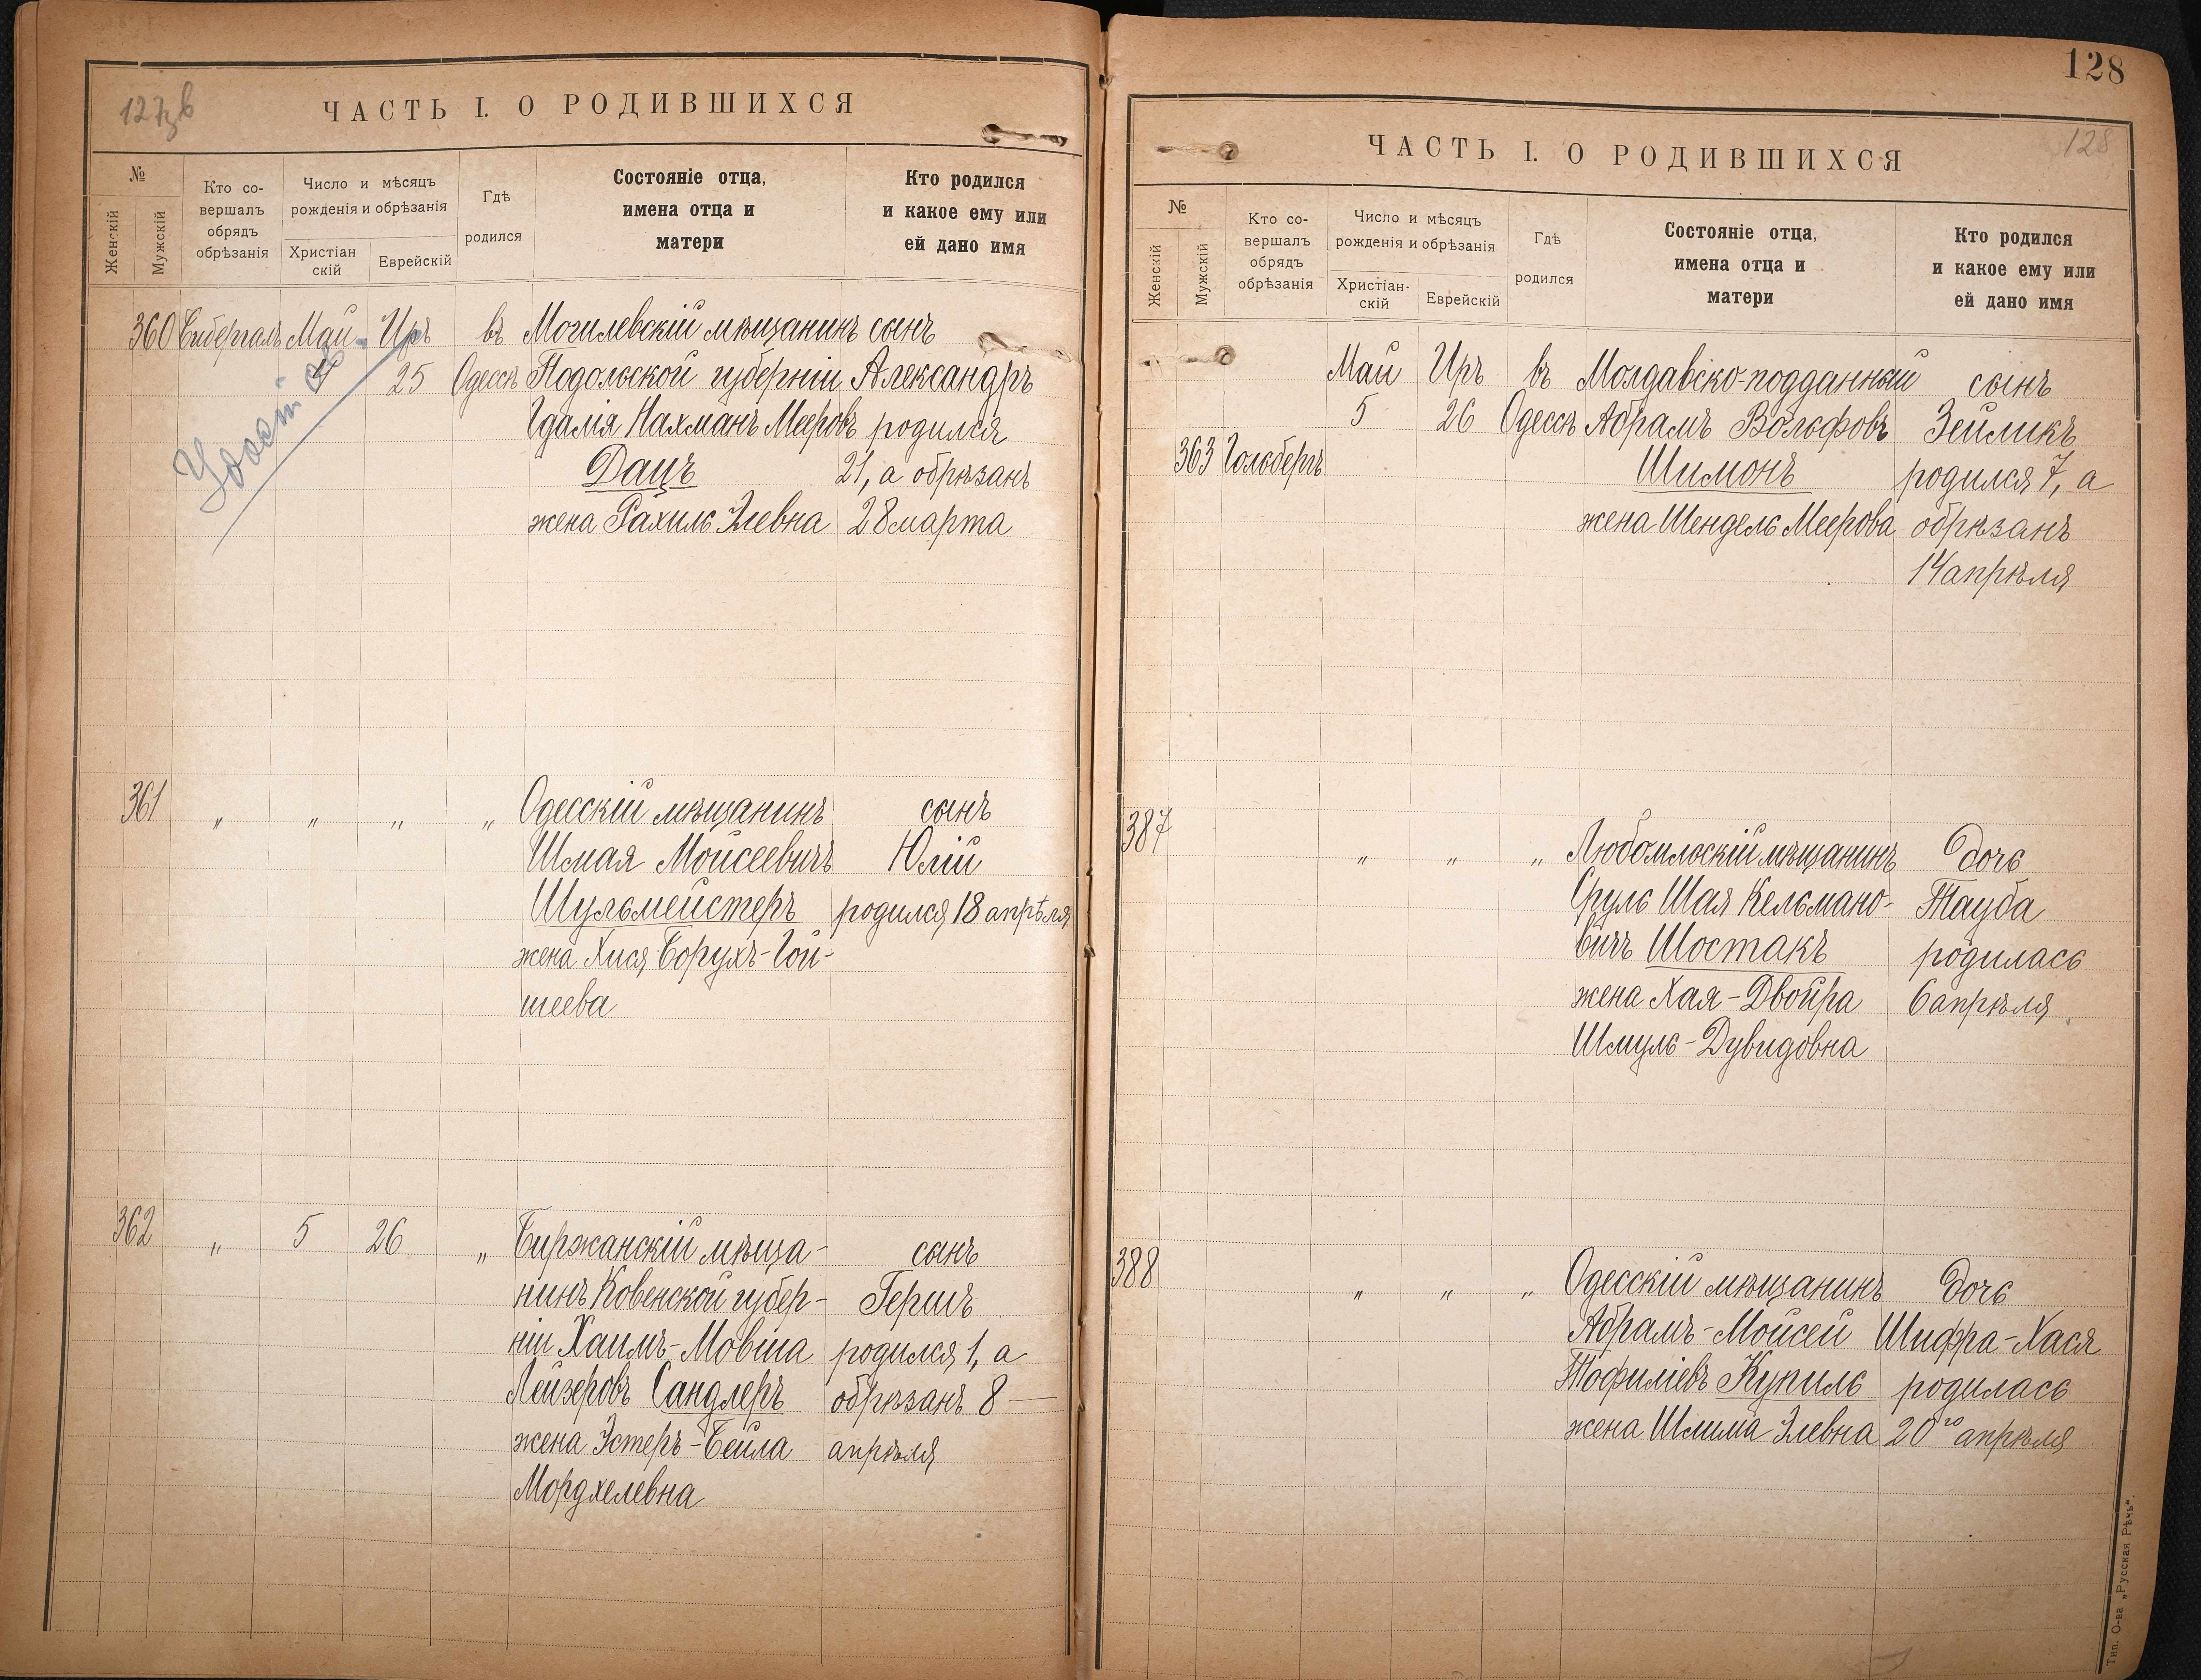 ЧАСТЬ I. О РОДИВШИХСЯ
№
Женскій
Мужскій
Кто со-
вершалъ
обрядъ
обрѣзанія
Число и мѣсяцъ
рожденія и обрѣзанія
Христіан
скій
Еврейскій
Гдѣ
родился
Состояніе отца,
имена отца и
матери
Кто родился
и какое ему или
ей дано имя
360 Май Иръ въ Могилевскій мѣщанинъ сынъ
4 25 Одессѣ Подольской губерніи Александръ
Гдалія Нахманъ Мееровъ родился
Дацъ 21, а обрѣзанъ
жена Рахиль Элевна 28 марта
361 " " " " Одесскій мѣщанинъ сынъ
Шмая Мойсеевичъ Юлій
Шульмейстеръ родился 18 апрѣля
жена Хися Борухъ-Гой-
шеева
362 " 5 26 " Биржанскій мѣща-
нинъ Ковенской губер- сынъ
ніи Хаимъ-Мовша Гершъ
Лейзеровъ Сандлеръ родился 1, а
жена Эстеръ-Бейла обрѣзанъ 8
Мордхелевна апрѣля
128
128
ЧАСТЬ I. О РОДИВШИХСЯ
№
Женскій
Мужскій
Кто со-
вершалъ
обрядъ
обрѣзанія
Число и мѣсяцъ
рожденія и обрѣзанія
Христіан-
скій
Еврейскій
Гдѣ
родился
Состояніе отца,
имена отца и
матери
Кто родился
и какое ему или
ей дано имя
Май Иръ въ Молдавско-подданный сынъ
5 26 Одессѣ Абрамъ Вольфовъ Зейликъ
363 Гольбергъ Шимонъ родился 7, а
жена Шендель Меерова обрѣзанъ
14 апрѣля
387 " " " Любомльскій мѣщанинъ дочь
Сруль Шая Кельмано- Тауба
вичъ Шостакъ родилась
жена Хая-Двойра 6 апрѣля
Шмуль-Дувидовна
388 " " " Одесскій мѣщанинъ дочь
Абрамъ-Мойсей Шифра-Хася
Тофиліевъ Купиль родилась
жена Шлима Элевна 20го апрѣля
Тип. О-ва „Русская Рѣчь“.